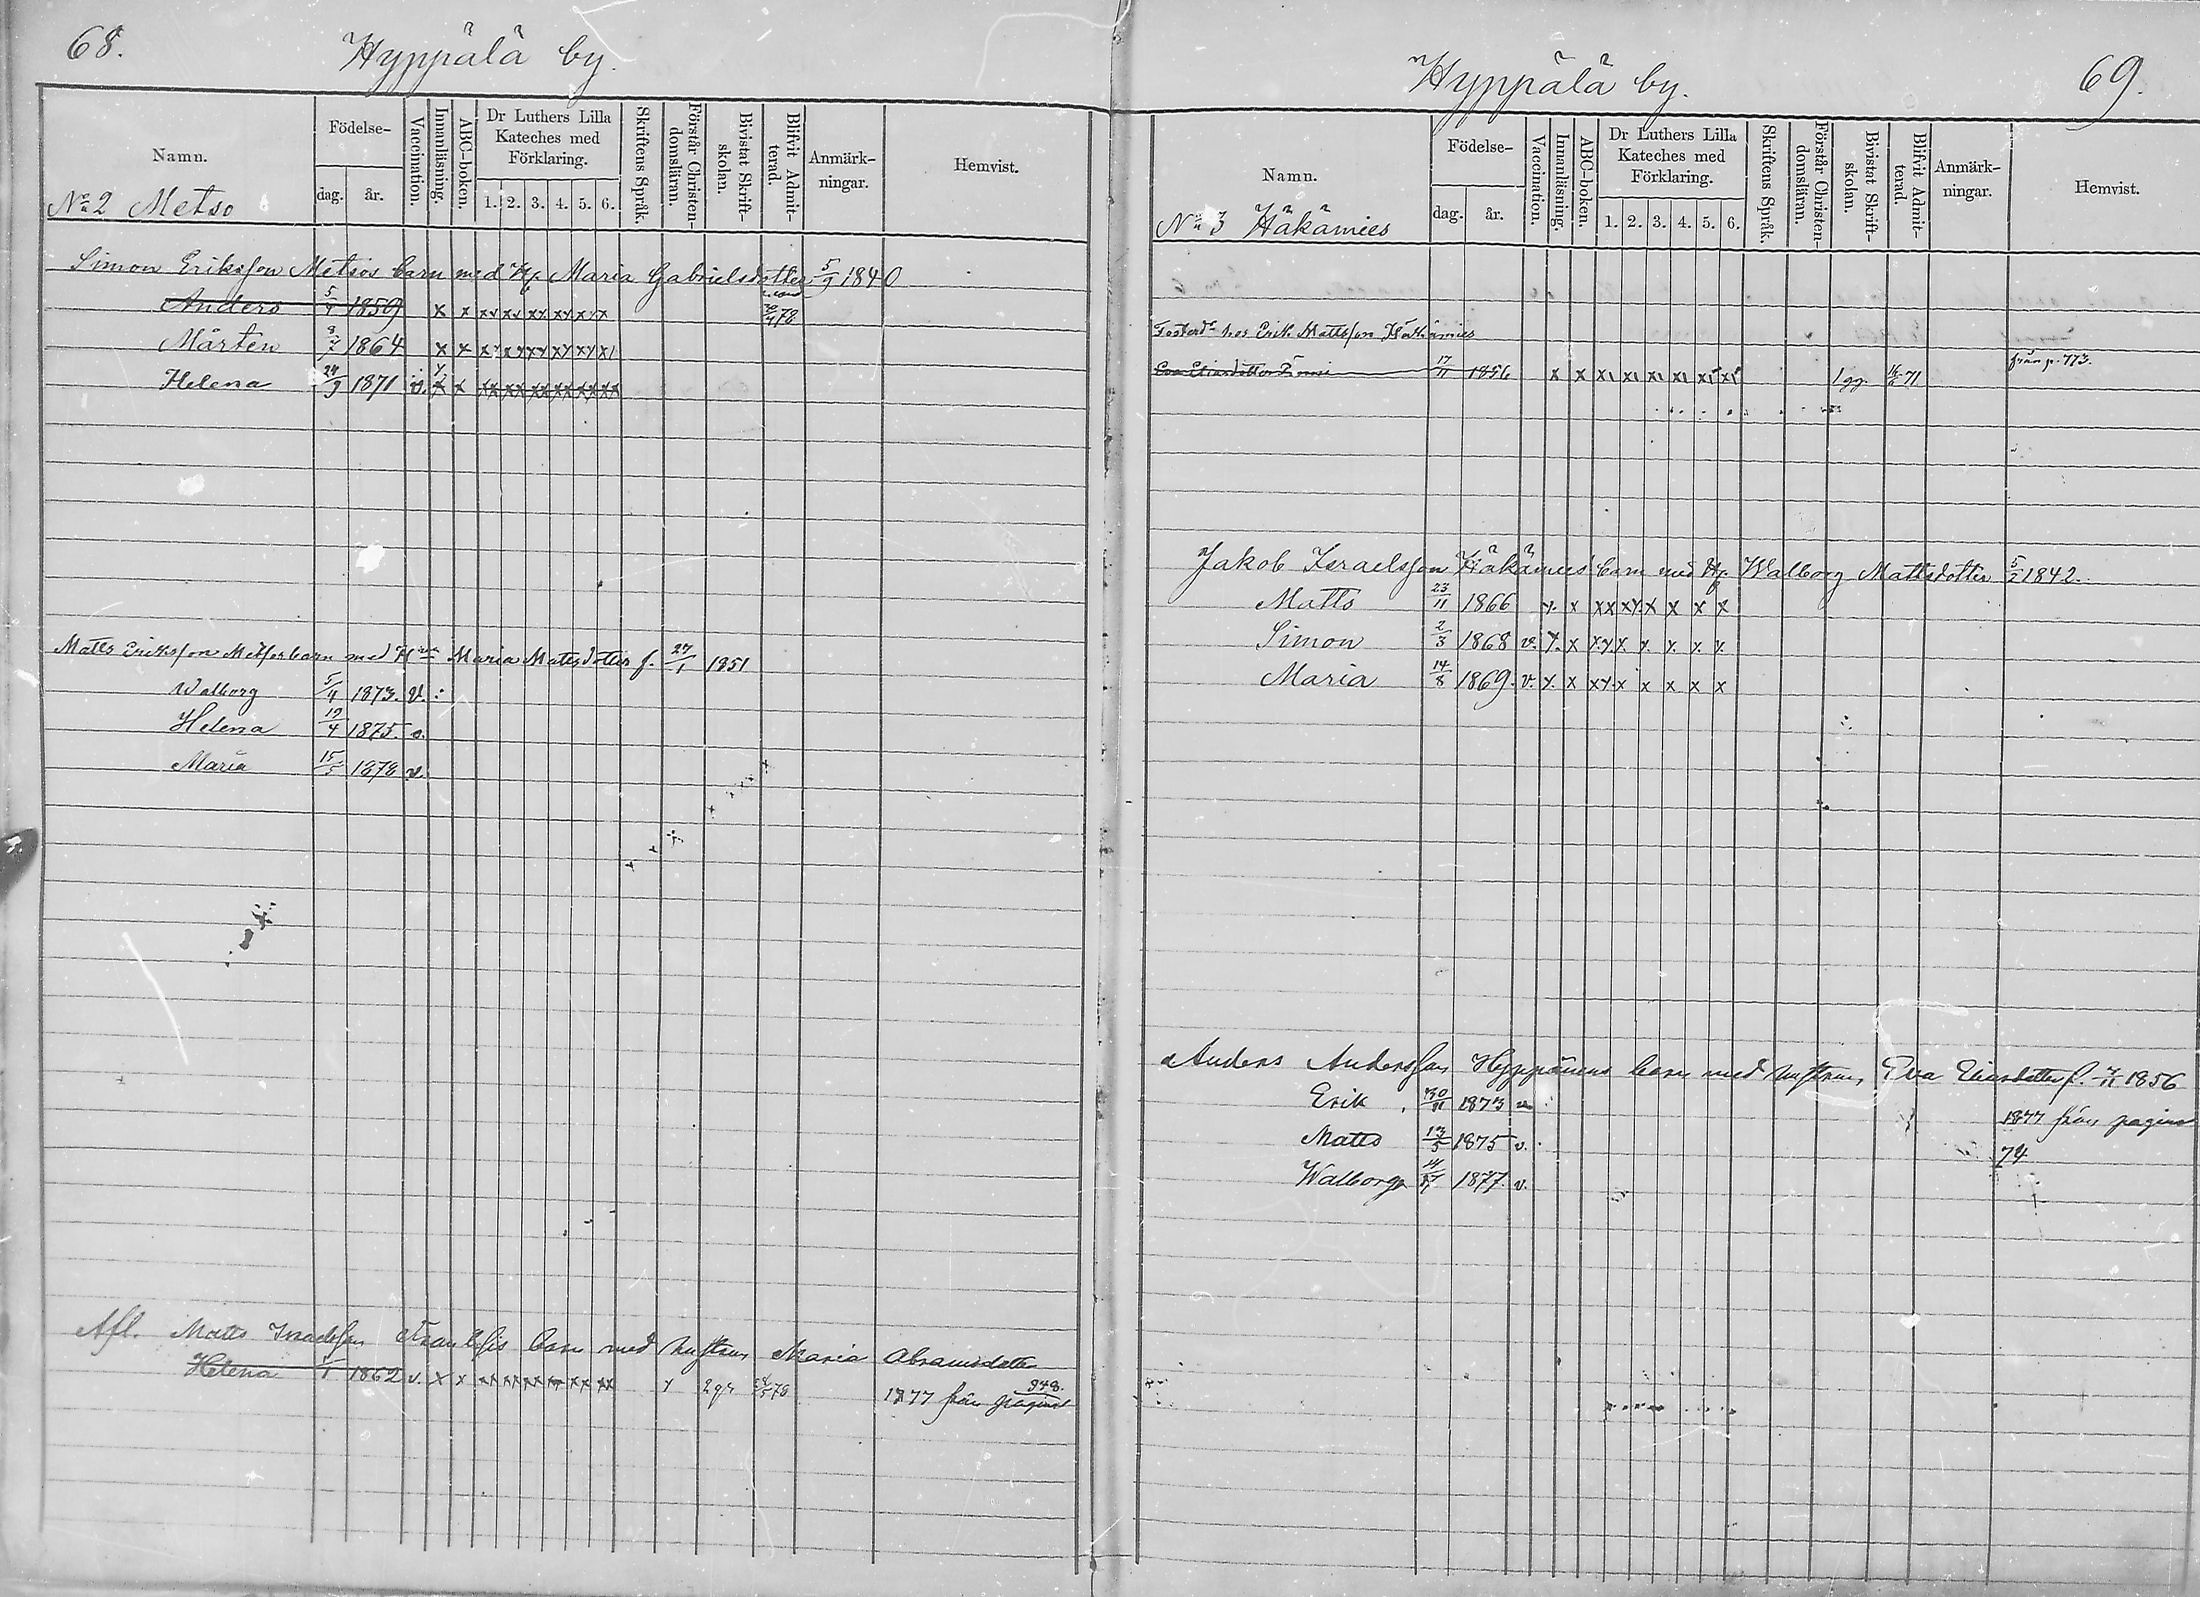 68.
Hyppälä by.
Namn.
Födelse-
dag.
år.
Vaccination.
Innanläsning.
ABC-boken.
Dr Luthers Lilla Kateches med Förklaring.
1. 2. 3. 4. 5. 6.
Skriftens Språk.
Förstår Christen-domsläran.
Bivistat Skrift-skolan.
Blifvit Admit-terad.
Anmärk-ningar.
Hemvist.
No 2 Metso
Simon Eriksson Metsos barn med H. Maria Gabrielsdotter 5/9 1840
Anders 5/4 1859 x x xx xx xx xx xx 78
Mårten 1864 x x
Helena 24/9 1871 v. x x xx xx xx xx xx xx
Matts Eriksson Metsos barn med Maria Matsdotter f. 27/1 1851
Walborg 5/4 1873. v.
Helena 19/4 1875. v.
Maria 15/5 1878 v.
Afl. Matts barn med hustrun Maria Abramsdotter
Helena 1862 v. x x xx xx xx xx xx xx 78 1877 från pagina 948.
69.
Hyppälä by.
Namn.
Födelse-
dag.
år.
Vaccination.
Innanläsning.
ABC-boken.
Dr Luthers Lilla Kateches med Förklaring.
1. 2. 3. 4. 5. 6.
Skriftens Språk.
Förstår Christen-domsläran.
Bivistat Skrift-skolan.
Blifvit Admit-terad.
Anmärk-ningar.
Hemvist.
No 3 Häkämies
hos Erik Mattsson Häkämies
Eva Eliasdotter 17/11 1856 x x 1 gg. 71 från p. 773.
Jakob Israelsson Häkämies' barn med H. Walborg Mattsdotter 5/2 1842.
Matts 23/11 1866 x x xx xx x x x x
Simon 2/3 1868 v. x x x x x x x x x
Maria 14/8 1869. v. x x x x x x x x x
Anders Andersson Hyppänens barn med hustrun Eva Eliasdotter f. 1856
Erik 1873 v. 1877 från pagina
Matts 13/5 1875 v. 74
Walborg 1877. v.